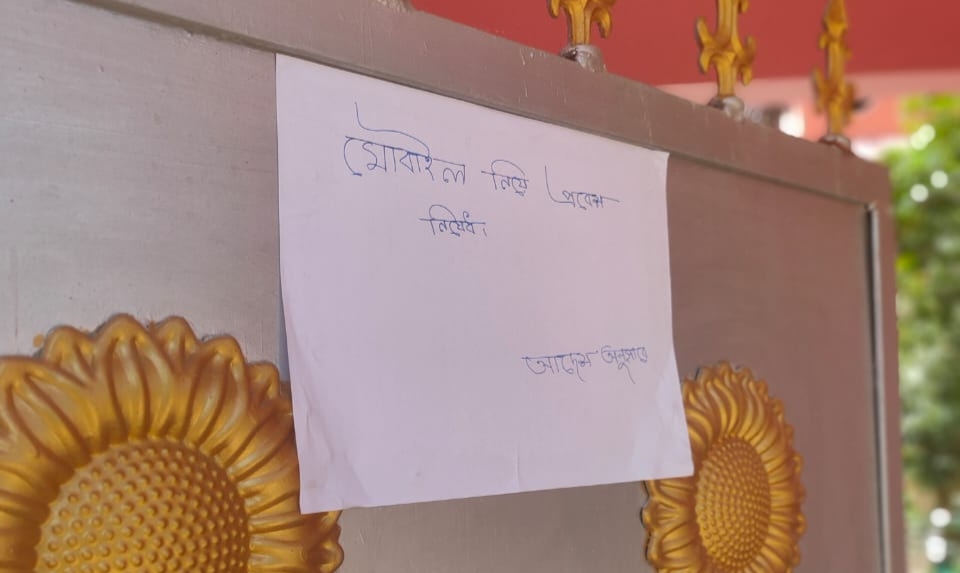 মোবাইল নিয়ে প্রবেশ
নিষেধ।
আদেশ অনুসারে